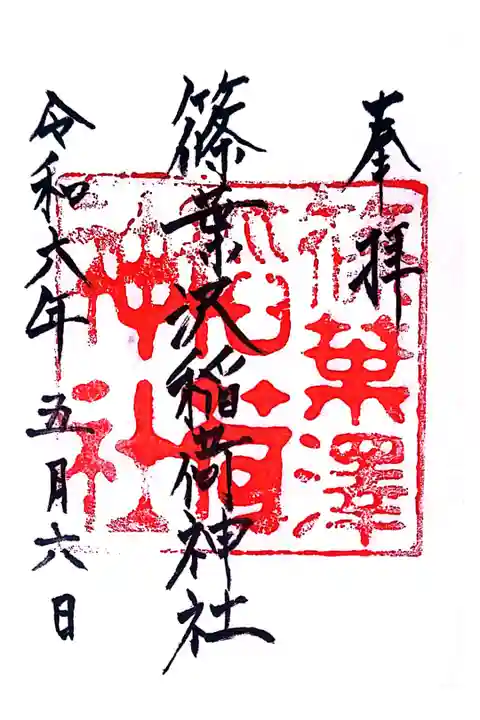 奉拝
篠葉沢稲荷神社
令和六年 五月六日
篠葉澤
稲荷
神社